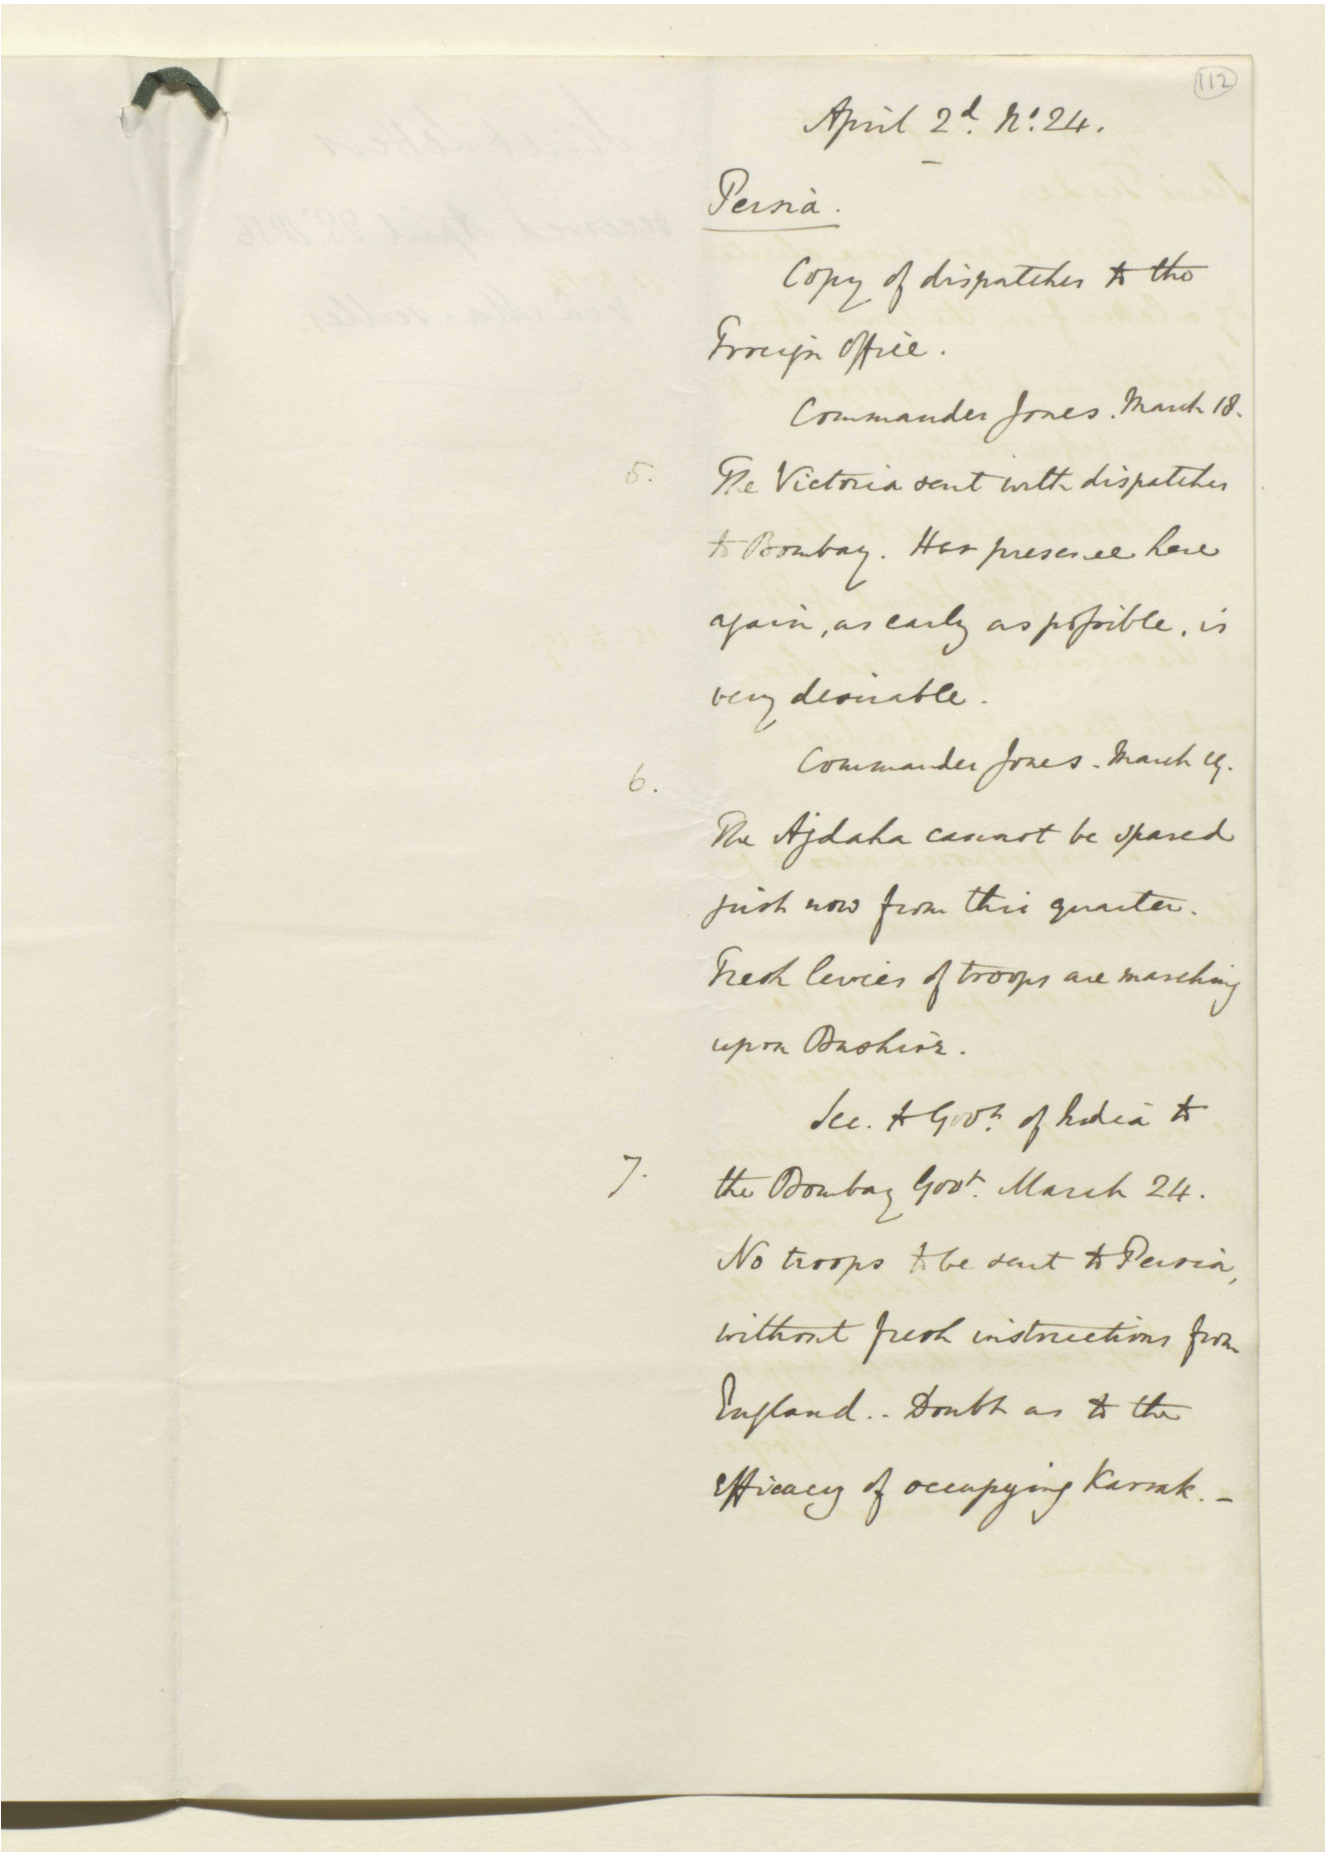 112
April 2d. No. 24.
Persia.
Copy of dispatches to the
Foreign Office.
Commander Jones. March 18.
5. The Victoria sent with dispatches
to Bombay. Her presence here
again, as early as possible, is
very desirable.
Commander Jones. March 19.
6.
The Ajdaha cannot be spared
just now from this quarter.
Fresh levies of troops are marching
upon Bushire.
Sec. to Govt. of India to
7. the Bombay Govt. March 24.
No troops to be sent to Persia,
without fresh instructions from
England.. Doubt as to the
efficacy of occupying Karrak. -